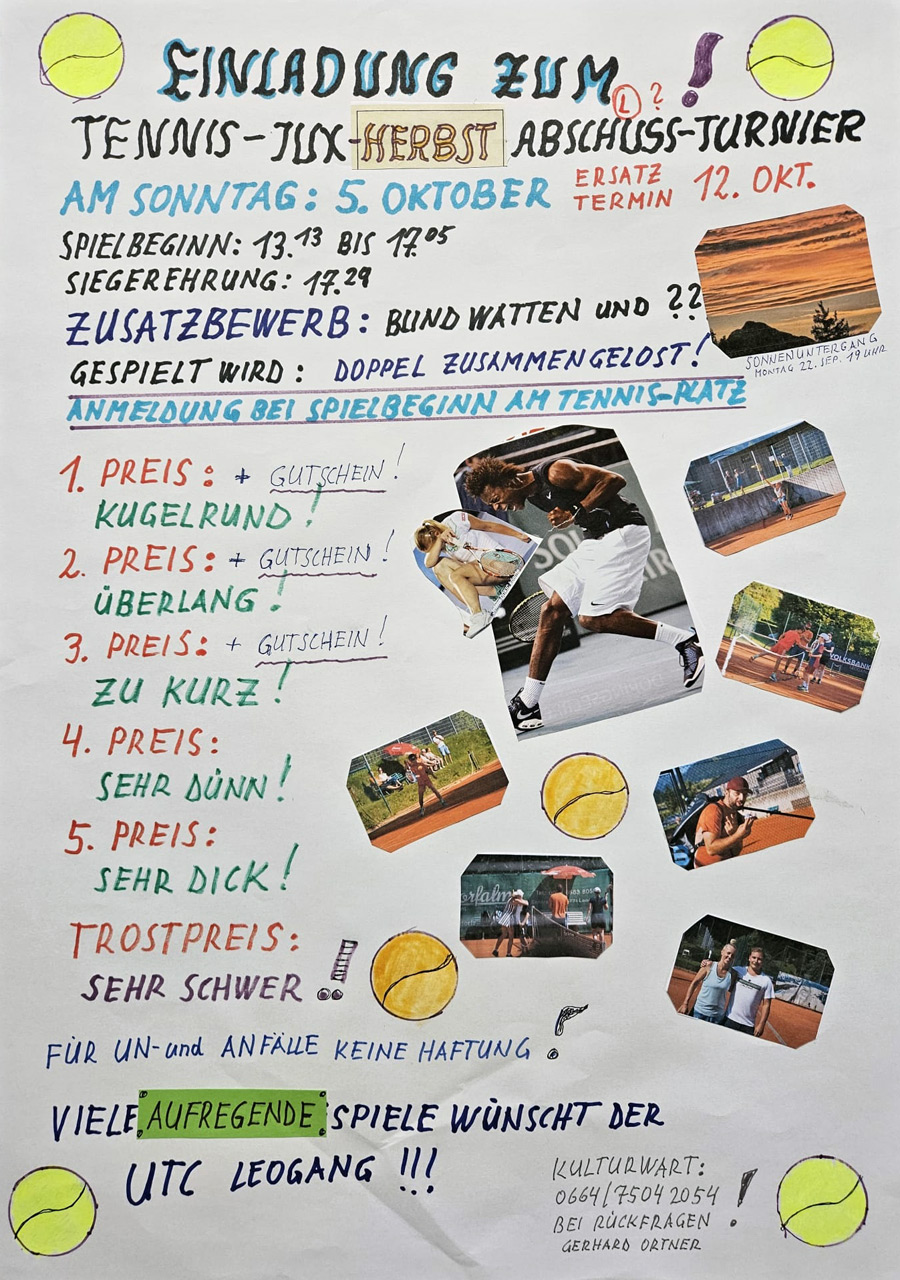 EINLADUNG ZUM !
L ?
TENNIS-JUX-HERBST ABSCHUSS-TURNIER
AM SONNTAG: 5. OKTOBER
ERSATZ
TERMIN 12. OKT.
SPIELBEGINN: 13.13 BIS 17.05
SIEGEREHRUNG: 17.29
ZUSATZBEWERB: BLIND WATTEN UND ??
GESPIELT WIRD: DOPPEL ZUSAMMENGELOST!
SONNENUNTERGANG
MONTAG 22. SEP. 19 UHR
ANMELDUNG BEI SPIELBEGINN AM TENNIS-PLATZ
1. PREIS: + GUTSCHEIN!
KUGELRUND!
2. PREIS: + GUTSCHEIN!
ÜBERLANG!
3. PREIS: + GUTSCHEIN!
ZU KURZ!
4. PREIS:
SEHR DÜNN!
5. PREIS:
SEHR DICK!
TROSTPREIS:
SEHR SCHWER!!
VOLKSBANK
FÜR UN-und ANFÄLLE KEINE HAFTUNG !
VIELE AUFREGENDE SPIELE WÜNSCHT DER
UTC LEOGANG !!!
KULTURWART:
0664/7504 2054 !
BEI RÜCKFRAGEN
GERHARD ORTNER